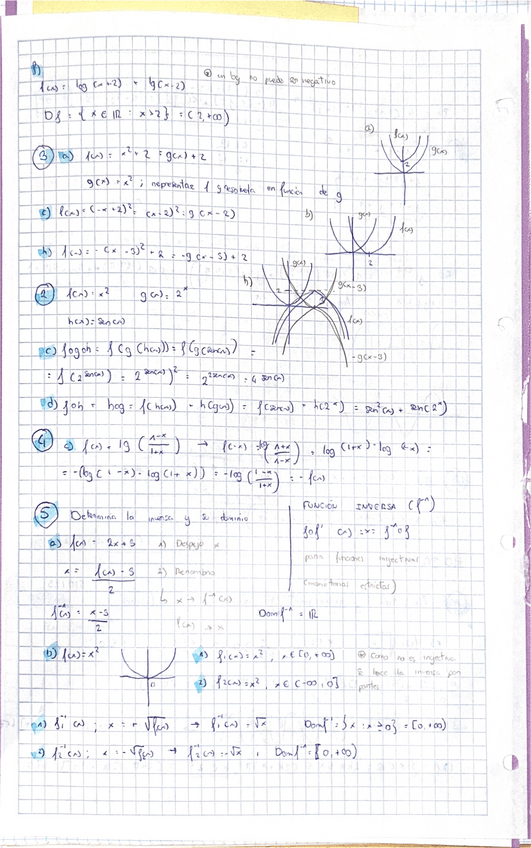 f)
f(x) = log (x+2) + log(x-2)
⊛ un log no puede ser negativo
Df = { x ∈ ℝ : x>2} = (2,+∞)
3 a) f(x) = x²+2 = g(x)+2
g(x) = x² ; representar f en función de g
c) f(x) = (-x+2)² = (x-2)² = g(x-2)
h) f(x) = -(x-3)²+2 = -g(x-3)+2
a) f(x) g(x) 2
b) g(x) f(x) 2
h) g(x) g(x-3) 2 f(x) -g(x-3)
2 f(x) = x² g(x) = 2ˣ
h(x) = sen(x)
c) fogoh = f(g(h(x))) = f(g(sen(x))) =
= f(2^sen(x)) = (2^sen(x))² = 2^2sen(x) = 4^sen(x)
d) foh + hog = f(h(x)) + h(g(x)) = f(sen(x)) + h(2ˣ) = sen²(x) + sen(2ˣ)
4 c) f(x) = lg (1-x/1+x) → f(-x) = lg (1+x/1-x) = log(1+x) - log(1-x) =
= -(log(1-x) - log(1+x)) = -log(1-x/1+x) = -f(x)
5 Determina la inversa y su dominio
a) f(x) = 2x+3 1) Despejo x
x = f(x)-3/2 2) Renombro
↳ x → f⁻¹(x)
f(x) → x
f⁻¹(x) = x-3/2 Dom f⁻¹ = ℝ
FUNCIÓN INVERSA (f⁻¹)
fof⁻¹ (x) = x = f⁻¹of
para funciones inyectivas
(monótonas estrictas)
b) f(x) = x² 0
1) f₁(x) = x² , x ∈ [0,+∞)
2) f₂(x) = x² , x ∈ (-∞,0]
⊛ Como no es inyectiva
se hace la inversa por
partes
1) f₁⁻¹(x) ; x = +√f(x) → f₁⁻¹(x) = √x Dom f⁻¹ = {x : x ≥ 0} = [0,+∞)
2) f₂⁻¹(x) ; x = -√f(x) → f₂⁻¹(x) = -√x , Dom f⁻¹ = [0,+∞)